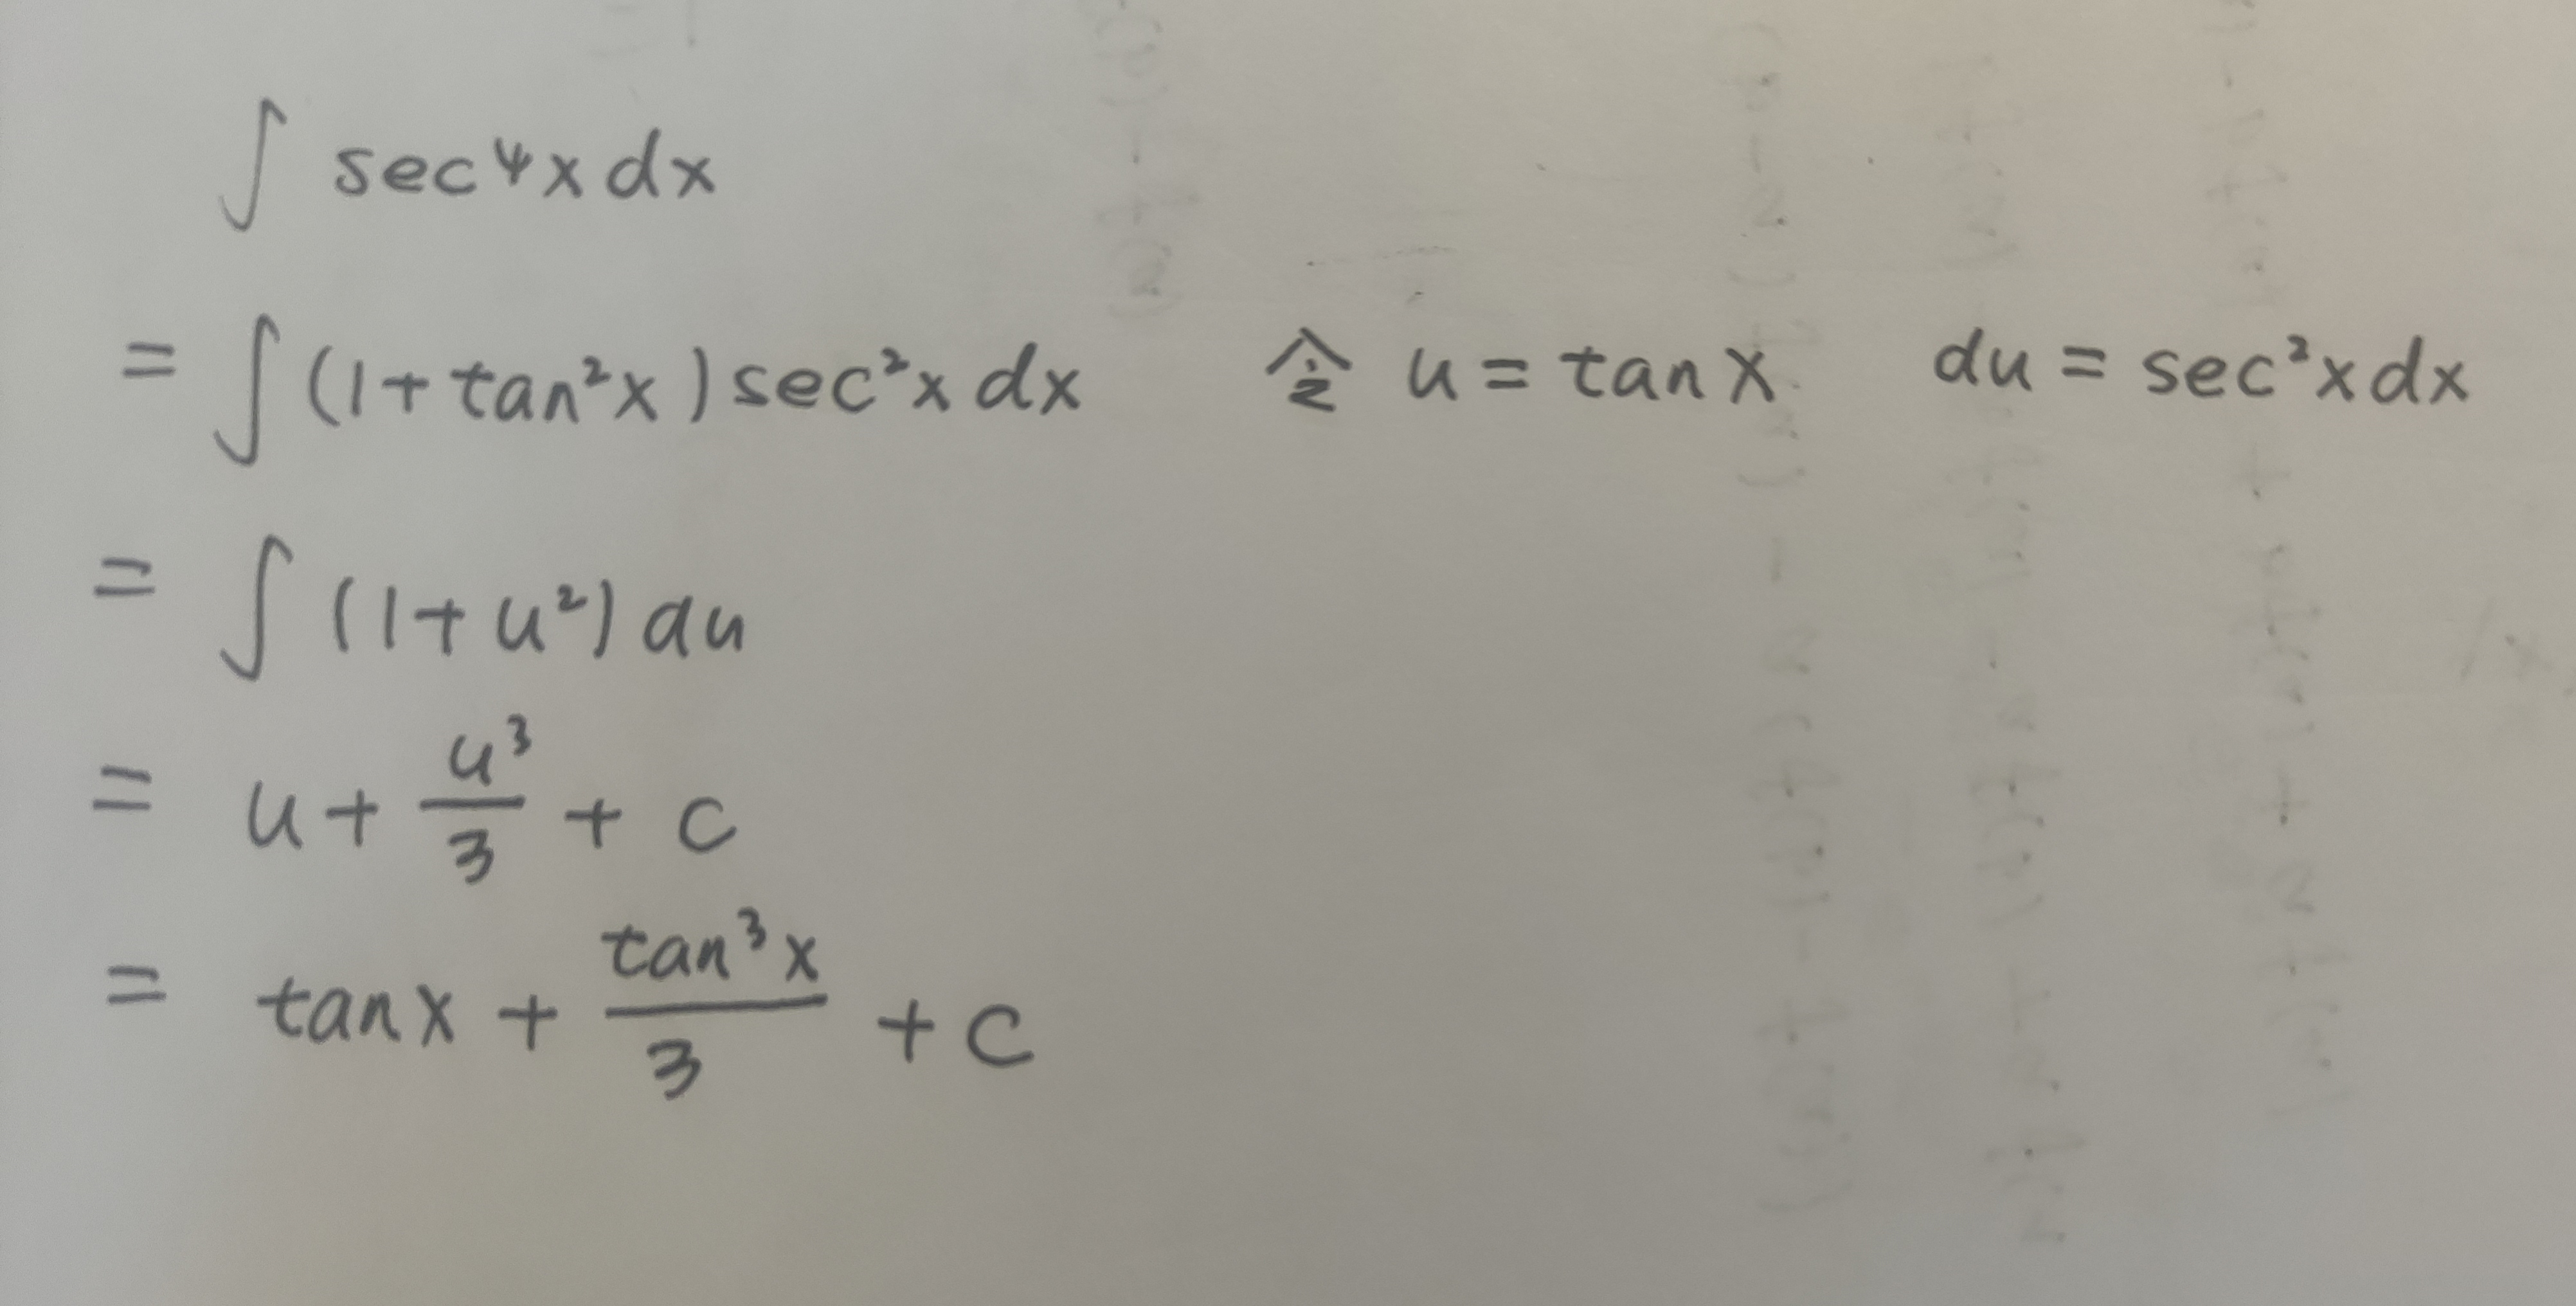 ∫ sec⁴x dx
= ∫ (1 + tan²x) sec²x dx 令 u = tan x du = sec²x dx
= ∫ (1 + u²) du
= u + u³/3 + c
= tan x + tan³x/3 + C